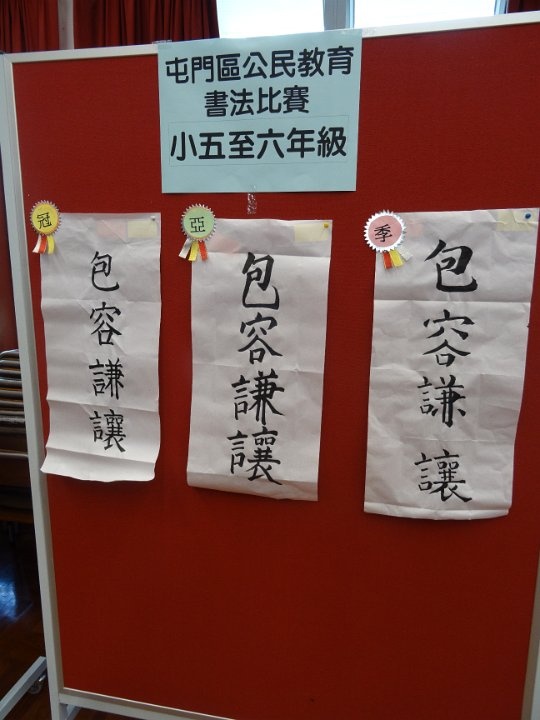 屯門區公民教育
書法比賽
小五至六年級
冠
包容謙讓
亞
包容謙讓
季
包容謙讓